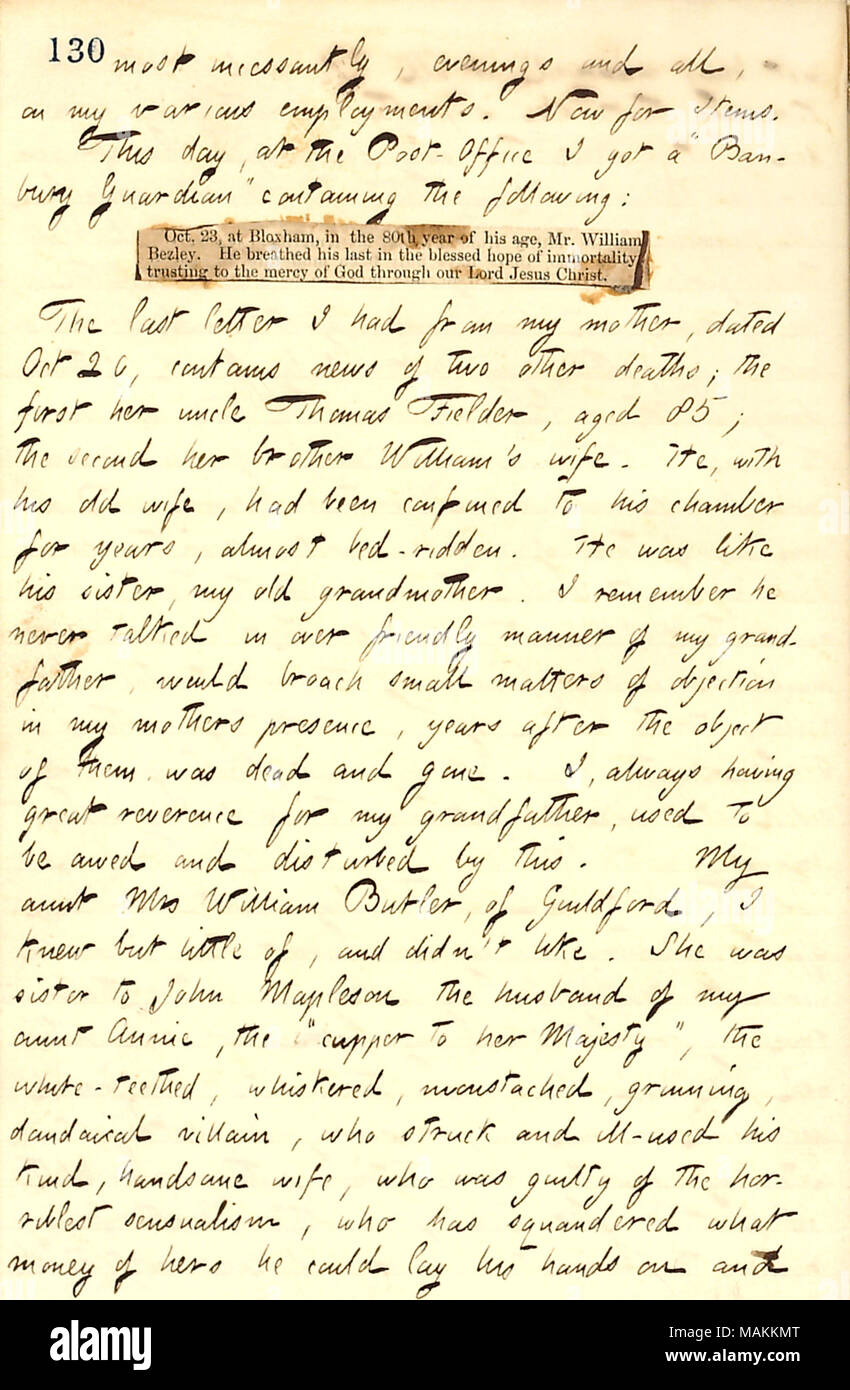 130
most incessantly, evenings and all,
on my various employments. Now for items.
This day, at the Post-Office I got a "Ban-
bury Guardian" containing the following:
Oct. 23, at Bloxham, in the 80th year of his age, Mr. William
Bezley. He breathed his last in the blessed hope of immortality
trusting to the mercy of God through our Lord Jesus Christ.
The last letter I had from my mother, dated
Oct 26, contains news of two other deaths; the
first her uncle Thomas Fielder, aged 85;
the second her brother William's wife. He, with
his old wife, had been confined to his chamber
for years, almost bed-ridden. He was like
his sister, my old grandmother. I remember he
never talked in over friendly manner of my grand-
father, would broach small matters of objection
in my mothers presence, years after the object
of them was dead and gone. I, always having
great reverence for my grandfather, used to
be awed and disturbed by this. My
aunt Mrs William Butler, of Guildford, I
knew but little of, and didn't like. She was
sister to John Mapleson the husband of my
aunt Annie, the "cupper to her Majesty", the
white-teethed, whiskered, moustached, grinning,
dandaical villain, who struck and ill-used his
kind, handsome wife, who was guilty of the hor-
riblest sensualism, who has squandered what
money of hers he could lay his hands on and
alamy
Image ID: MAKKMT
www.alamy.com